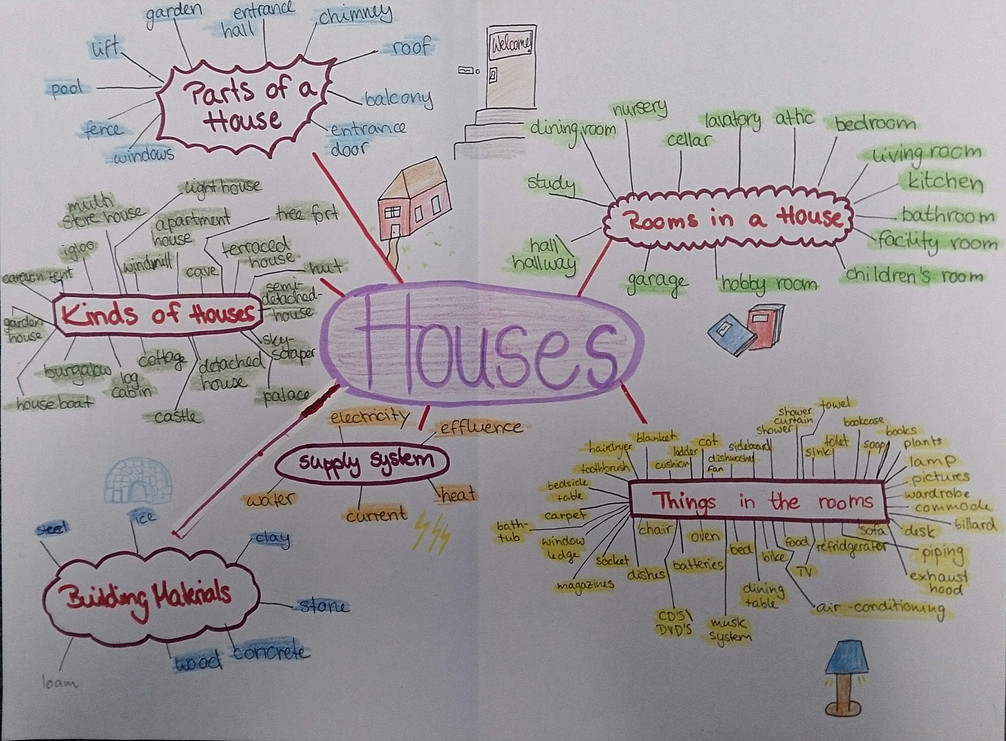 garden
entrance
hall
chimney
lift
roof
pool
Parts of a
House
balcony
fence
entrance
door
windows
Welcome
nursery
lavatory
attic
bedroom
dining room
cellar
living room
study
kitchen
Rooms in a House
bathroom
facility room
hall
hallway
garage
hobby room
children's room
light house
multi
store house
apartment
house
tree fort
igloo
windmill
cave
terraced
house
hut
caravan tent
semi-
detached-
house
Kinds of Houses
garden
house
sky-
scraper
bungalow
log
cabin
cottage
detached
house
palace
houseboat
castle
Houses
electricity
effluence
supply system
water
current
heat
steel
ice
clay
Building Materials
stone
wood
concrete
loam
towel
shower
curtain
bookcase
books
hairdryer
blanket
cot
sideboard
shower
toilet
soap
plants
ladder
sink
dishwasher
fan
cushion
toothbrush
lamp
pictures
bedside
table
Things in the rooms
wardrobe
commode
carpet
billard
bath-
tub
chair
sofa
desk
window
ledge
oven
bed
bike
food
refridgerater
piping
socket
batteries
TV
exhaust
hood
magazines
dishes
dining
table
air-conditioning
CD'S\
DVD'S
musk
system